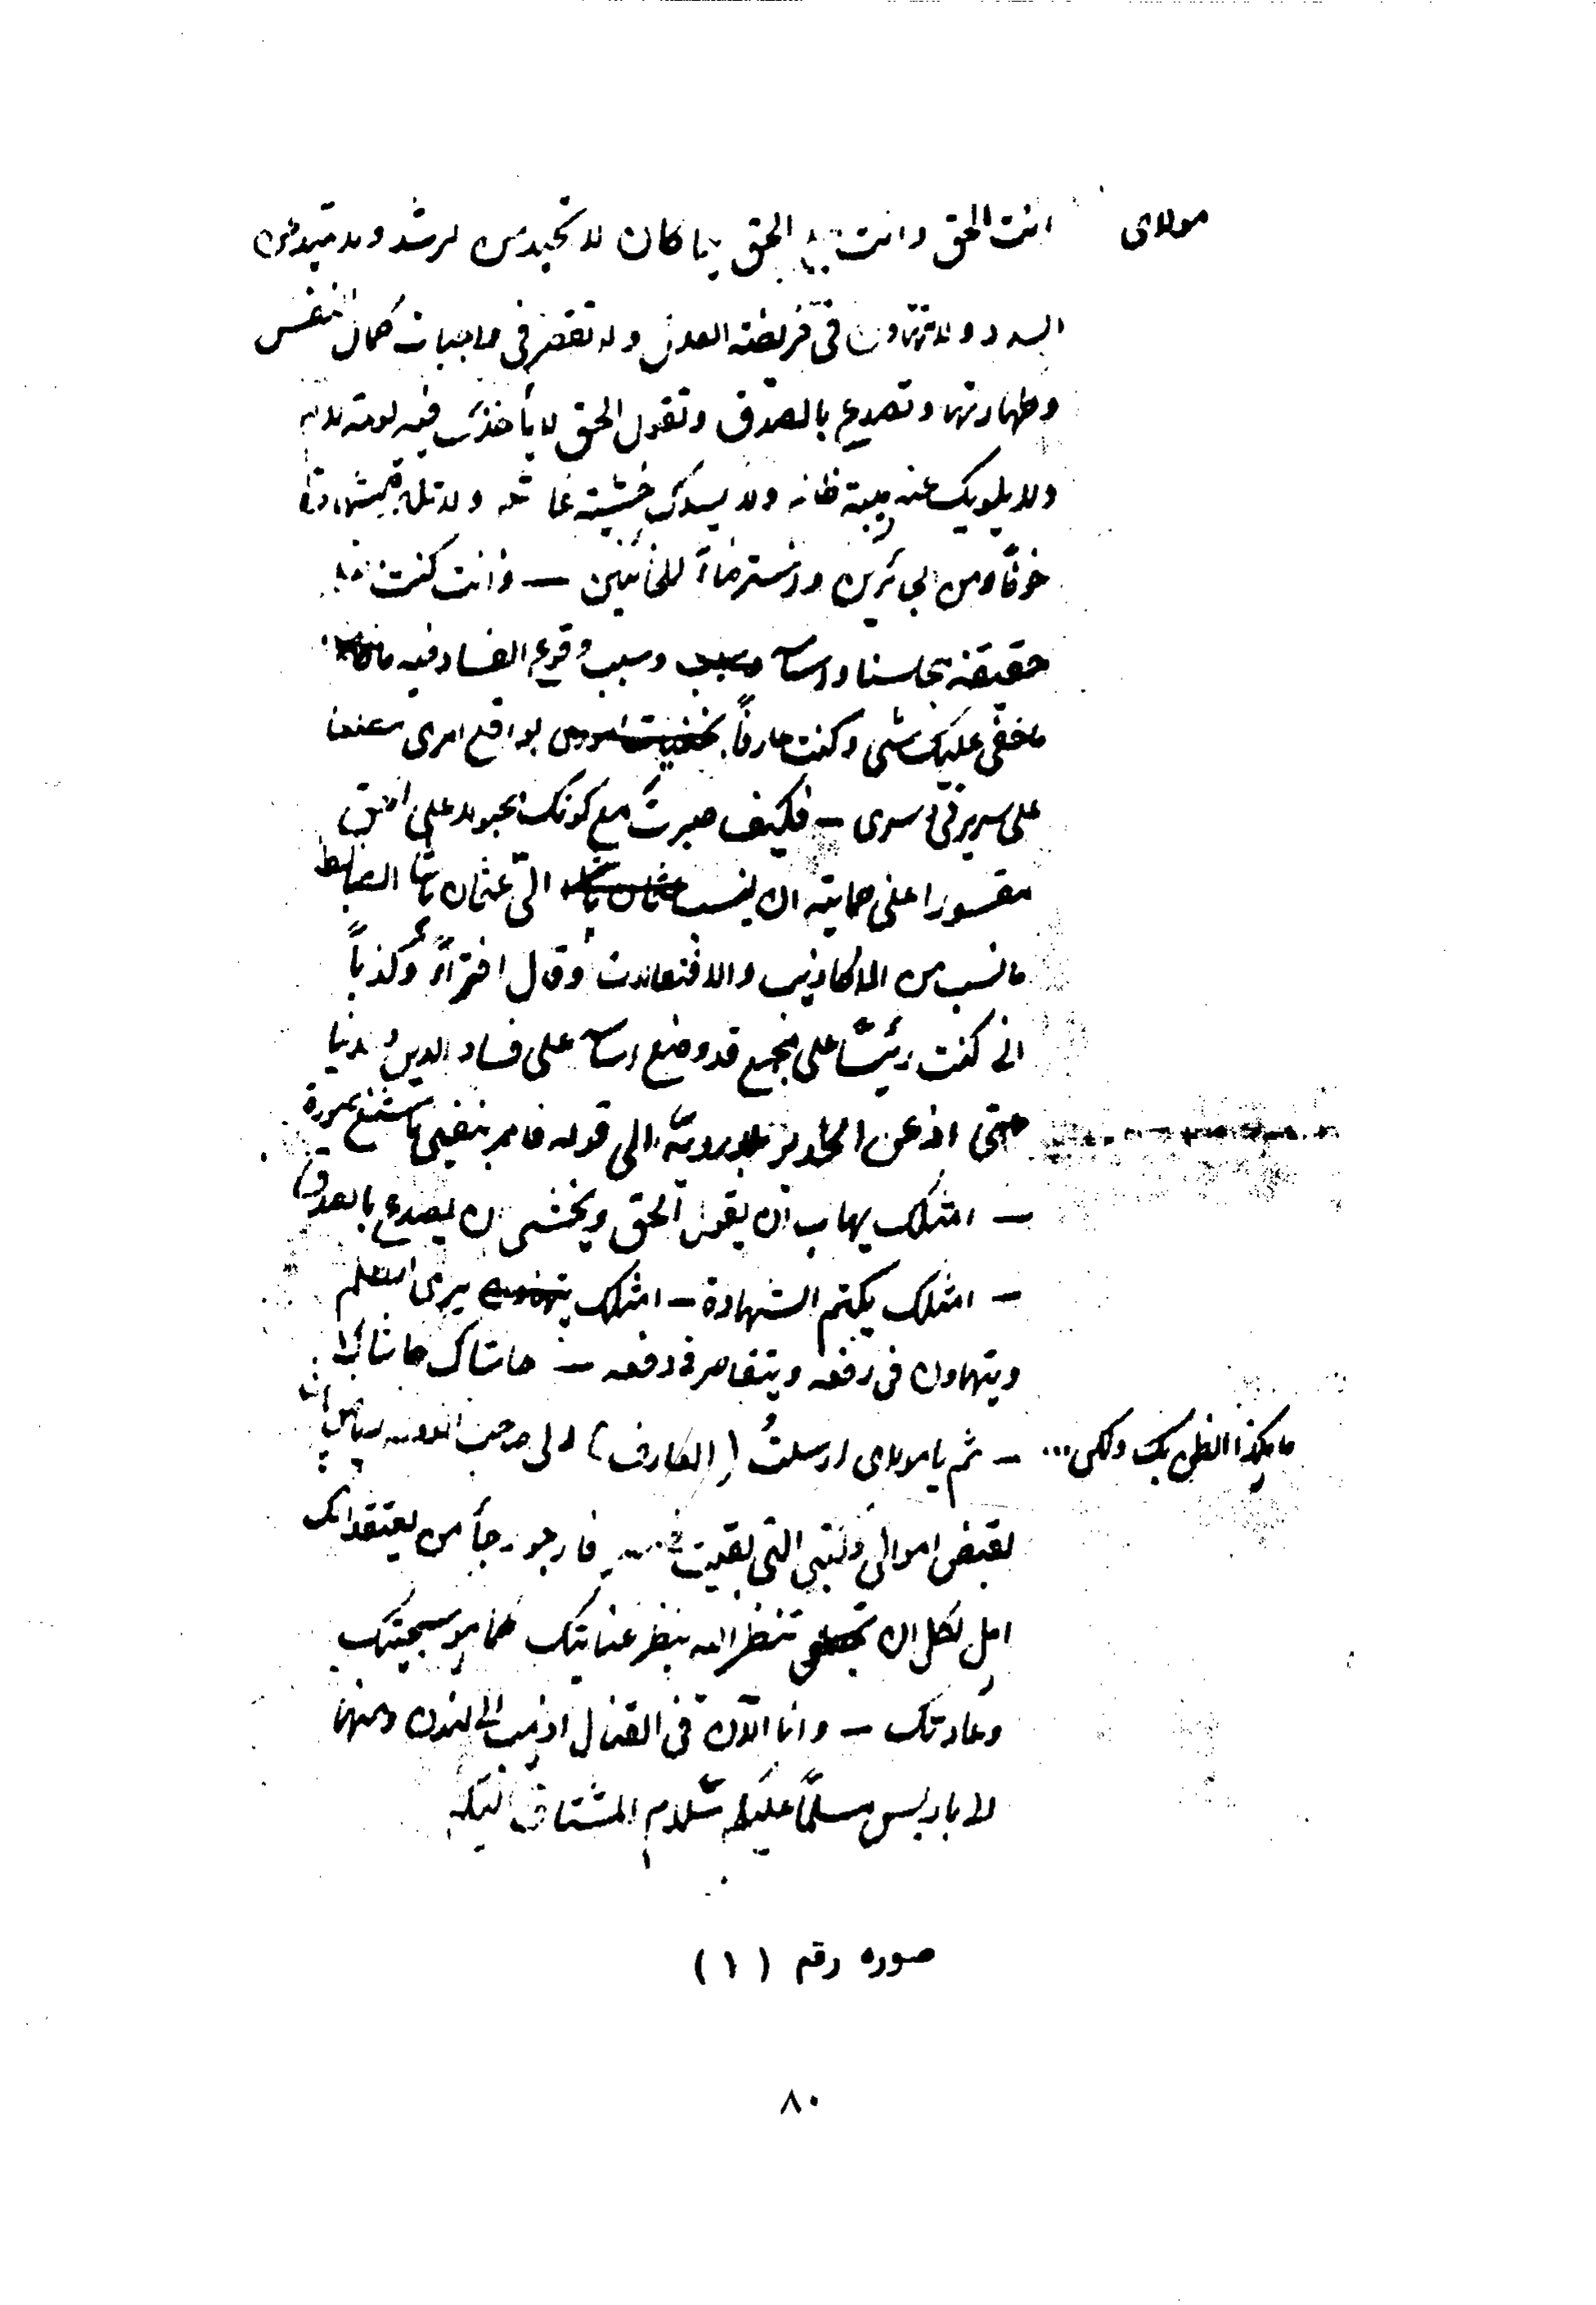 مولاى انت الحق وانت مع الحق اينما كان لا تحيد عن الرشد ولا تميد عن
السداد ولا تتهاون فى فريضة العدل ولا تقصر فى واجبات كمال النفس
وطهارتها وتصدع بالصدق وتقول الحق لا يأخذك فيه لومة لائم
ولا يلويك عنه ريبة ظان ولا يسدك خشية غائلة ولا تكتم شهادة
خوفًا من الجائرين واسترضاءً للخائنين — وانت كنت تعلم
حقيقة مجلسنا واساسه وسبب وقوع الفساد فيه
ما خفى عليك شئ وكنت عارفًا بواقع امرى
على سريرتى وسرى — فكيف صبرت مع كونك مجبولا على الحق
مقسورا على حمايته ان ينسب الىّ عثمان باشا الضابط
ما نسب من الاكاذيب والافتعالات وقال افتراءً وكذبًا
انى كنت رئيسًا على مجمع قد وضع اساسه على فساد الدين والدنيا
حتى اذعن الخديو بلا روية الى قوله فامر بنفيى باشنع صورة
— امثلك يهاب ان يقول الحق ويخشى ان يصدع بالصدق
— امثلك يكتم الشهادة — امثلك يرى الظلم
ويتهاون فى رفعه ويتقاصر فى دفعه — حاشاك حاشاك
ما هكذا الظن بك ولكن ... — ثم يا مولاى ارسلتُ (العارف) الى
لقبض اموالى وكتبى التى بقيت فارجو رجأ من يعتقد انك
اهل لكل ان تنظر اليه بنظر عنايتك كما هو سجيتك
وعادتك — وانا الآن فى القنال اذهب الى لندن ومنها
الى باريس مسلّمًا عليكم سلام المشتاق اليكم
صوره رقم (١)
٨٠